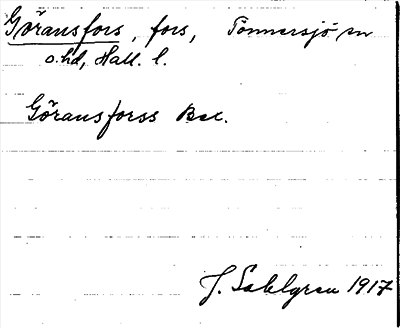 Göransfors, fors, Tönnersjö sn
o. hd, Hall. l.
Göransforss Bec.
J. Sahlgren 1917